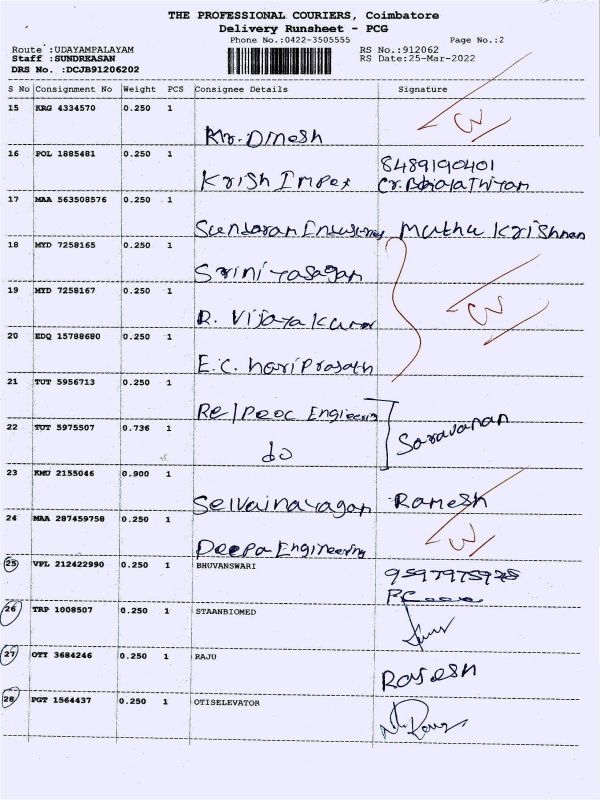 THE PROFESSIONAL COURIERS, Coimbatore
Delivery Runsheet - PCG
Phone No.:0422-3505555 Page No.:2
Route :UDAYAMPALAYAM RS No.:912062
Staff :SUNDREASAN RS Date:25-Mar-2022
DRS No. :DCJB91206202
S No Consignment No Weight PCS Consignee Details Signature
15 KRG 4334570 0.250 1
Mr. Dinesh
16 POL 1885481 0.250 1 8489190401
Krish Impex
17 MAA 563508576 0.250 1
Sundaram Industries Muthu Krishnan
18 MYD 7258165 0.250 1
19 MYD 7258167 0.250 1
R. Vijaya Kumar
20 EDQ 15788680 0.250 1
E.C. hari Prasath
21 TUT 5956713 0.250 1
Engineering
22 TUT 5975507 0.736 1 Saravanan
do
23 KMU 2155046 0.900 1
Selvainayagan Ramesh
24 MAA 287459758 0.250 1
Deepa Engineering
25 VPL 212422990 0.250 1 BHUVANSWARI
26 TRP 1008507 0.250 1 STAANBIOMED
27 OTY 3684246 0.250 1 RAJU
Rajesh
28 PGT 1564437 0.250 1 OTISELEVATOR